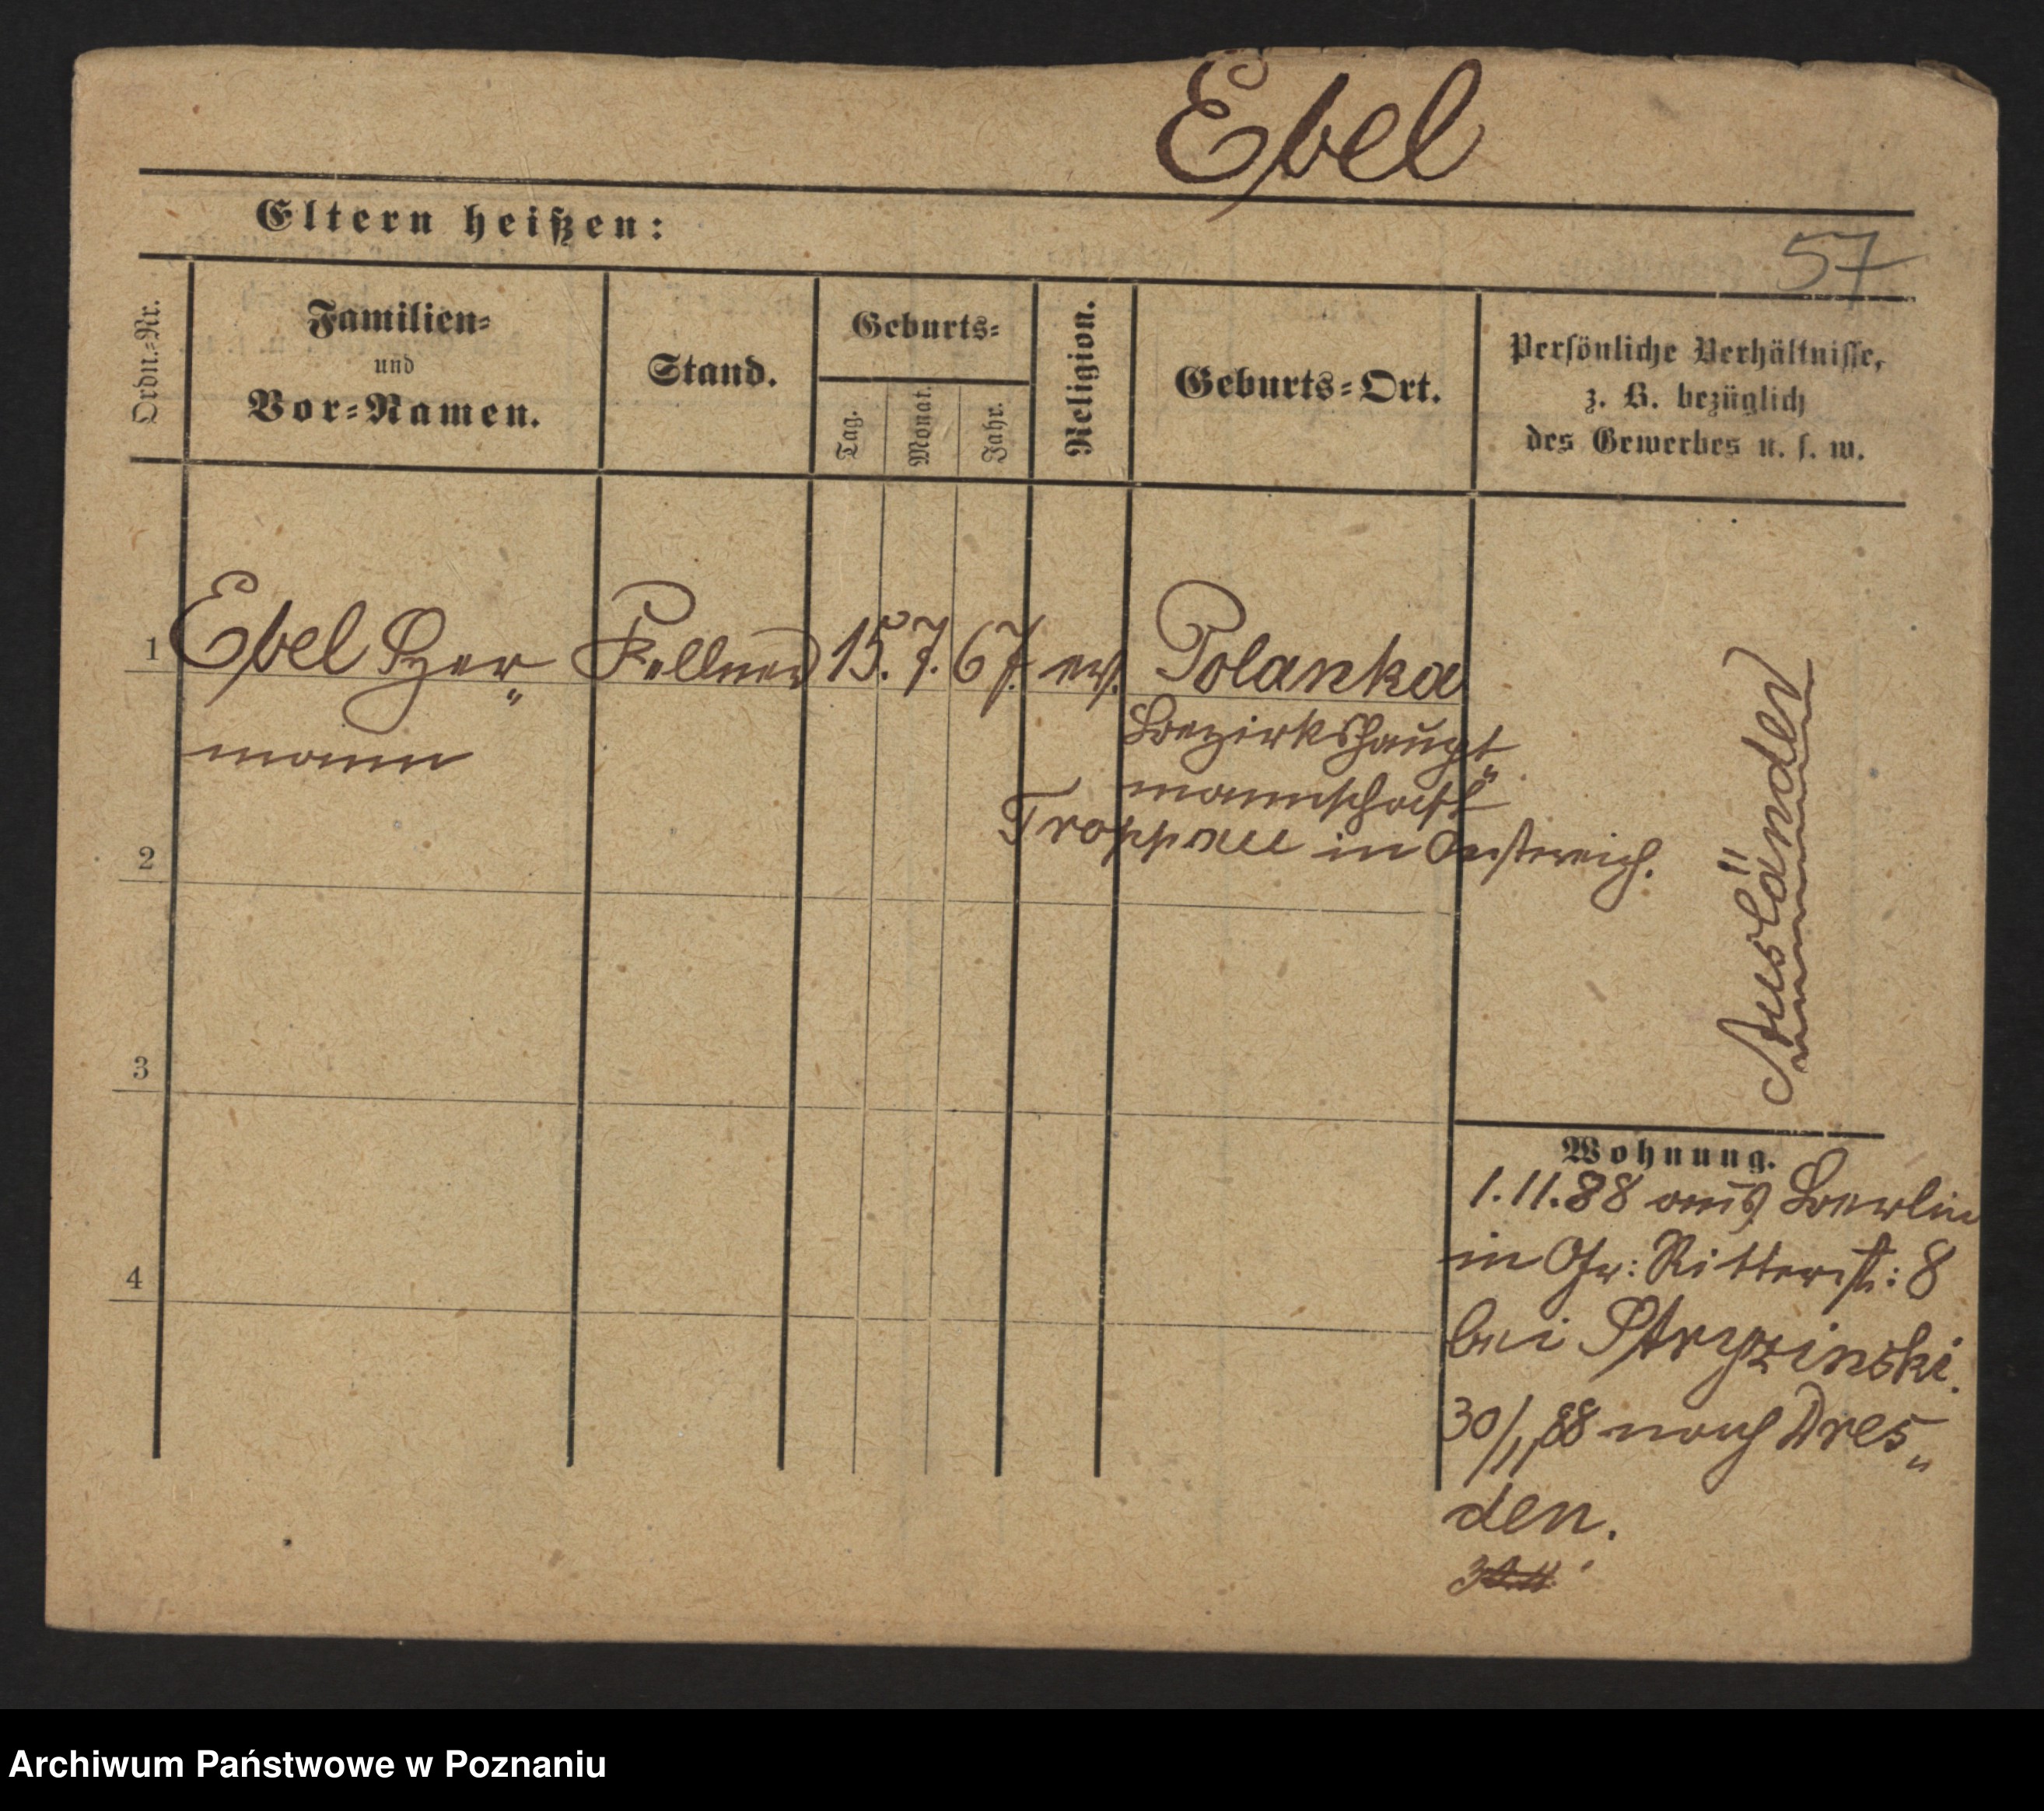 Ebel
Eltern heißen:
57
Ordn.-Nr.
Familien-
und
Vor-Namen.
Stand.
Geburts-
Tag.
Monat.
Jahr.
Religion.
Geburts-Ort.
Persönliche Verhältnisse,
z. B. bezüglich
des Gewerbes u. s. w.
1 Ebel Her„ Kellner 15. 7. 67. ev. Polanka
mann
Bezirkshaupt„
mannschaft
Troppau in Oestereich.
Ausländer
2
3
4
Wohnung.
1.11.88 aus Berlin
in Gr: Ritterst: 8
bei Stryzinski.
30/11 88 nach Dres„
den.
Archiwum Państwowe w Poznaniu